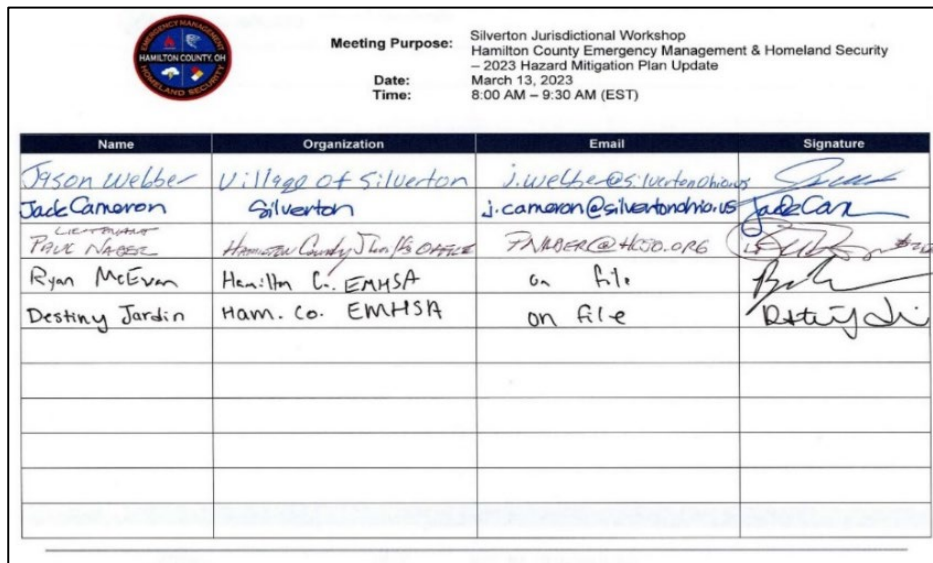 EMERGENCY MANAGEMENT
HAMILTON COUNTY, OH
HOMELAND SECURITY
Meeting Purpose: Silverton Jurisdictional Workshop
Hamilton County Emergency Management & Homeland Security
– 2023 Hazard Mitigation Plan Update
Date: March 13, 2023
Time: 8:00 AM – 9:30 AM (EST)
Name Organization Email Signature
Jason Webber Village of Silverton j.webber@silvertonohio.us
Jack Cameron Silverton j.cameron@silvertonohio.us Jack Cam
LIEUTENANT
PAUL NABER HAMILTON County Sheriff's OFFICE PNABER@HCSO.ORG
Ryan McEwan Hamilton C. EMHSA on file
Destiny Jardin Ham. Co. EMHSA on file